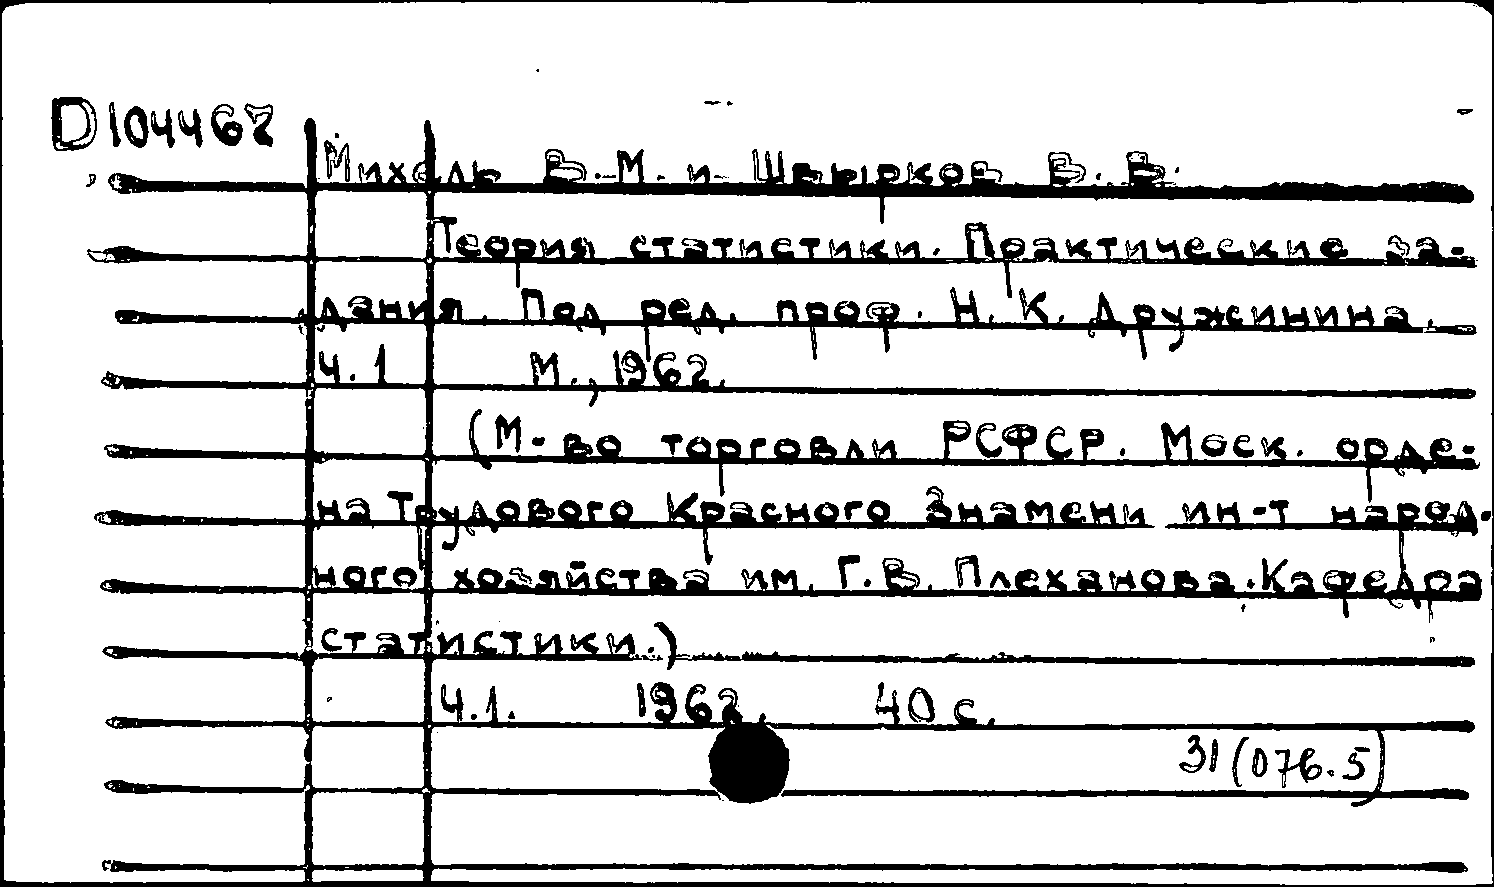 D104467
Михель В.М. и Швырков В.В.
Теория статистики. Практические за-
дания. Под ред. проф. Н.К. Дружинина.
Ч.1 М., 1962.
(М-во торговли РСФСР. Моск. орде-
на Трудового Красного Знамени ин-т народ-
ного хозяйства им. Г.В. Плеханова. Кафедра
статистики.)
Ч.1. 1962. 40 с.
31(076.5)